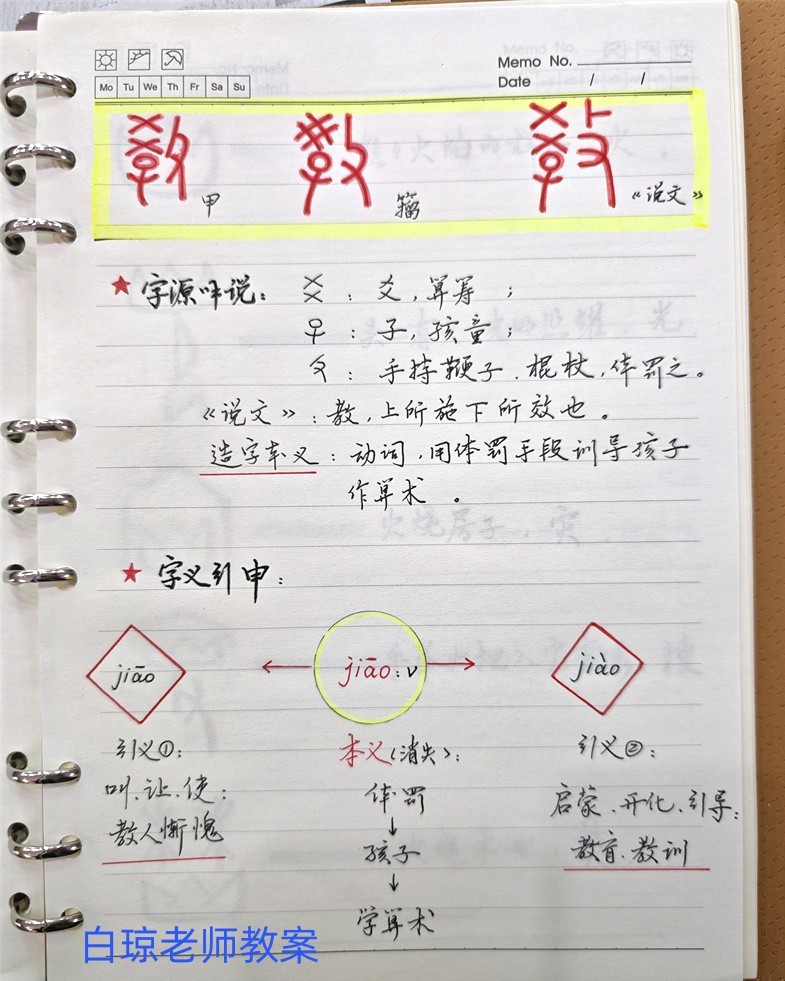 Memo No.
Date / /
Mo Tu We Th Fr Sa Su
甲 籀 《说文》
★字源咔说： 爻，算筹；
：子，孩童；
攵：手持鞭子、棍杖，体罚之。
《说文》：教，上所施下所效也。
造字本义：动词，用体罚手段训导孩子
作算术。
★字义引申：
jiāo jiāo：v jiào
引义①： 本义（消失）： 引义②：
叫、让、使： 体罚 启蒙、开化、引导：
教人惭愧 孩子 教育、教训
学算术
白琼老师教案